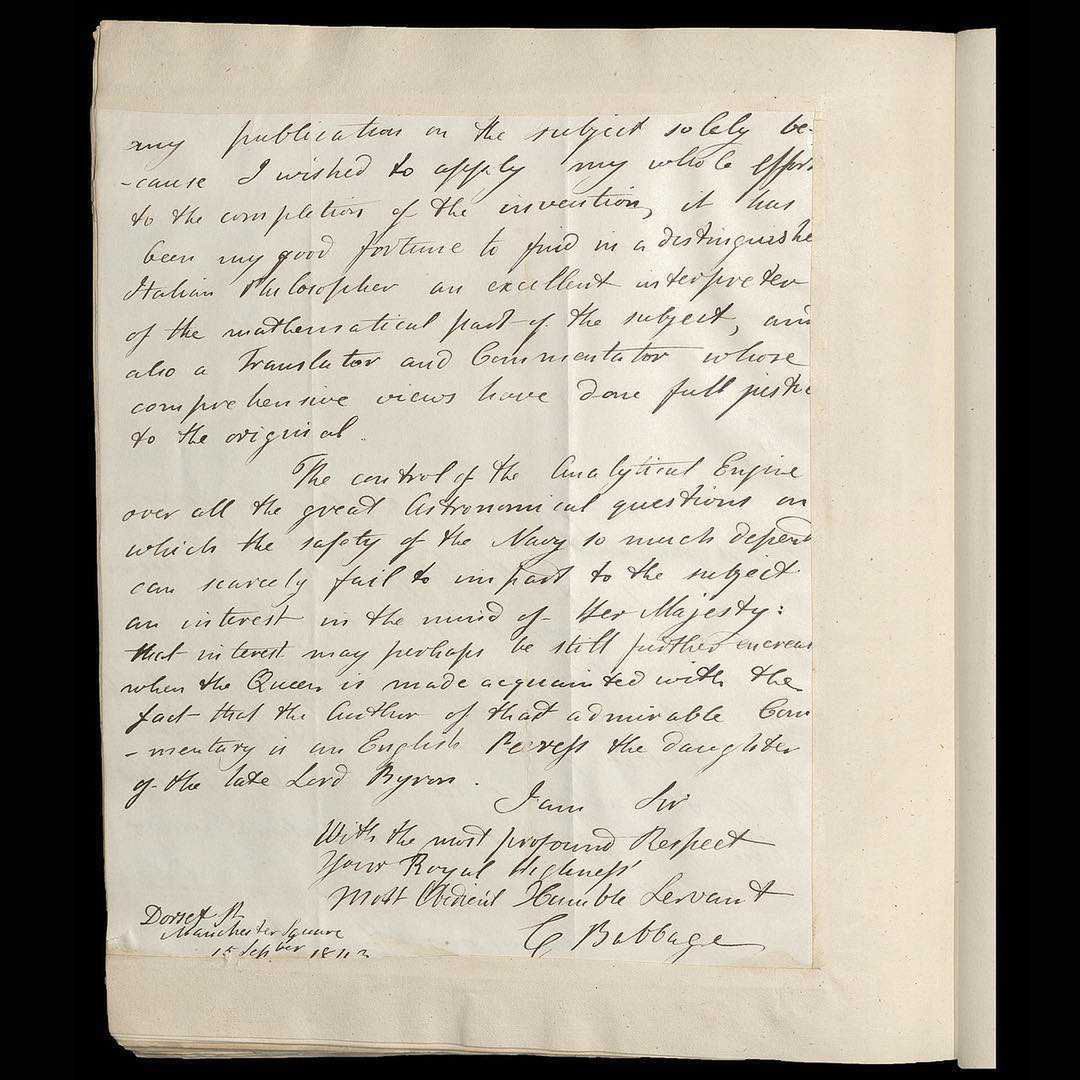 any publication on the subject solely be-
-cause I wished to apply my whole effort
to the completion of the invention, it has
been my good fortune to find in a distinguishe
Italian Philosopher an excellent interpreter
of the mathematical part of the subject, and
also a Translator and Commentator whose
comprehensive views have done full justic
to the original.
The control of the Analytical Engine
over all the great Astronomical questions on
which the safety of the Navy so much depend
can scarcely fail to impart to the subject
an interest in the mind of Her Majesty:
that interest may perhaps be still further encreas
when the Queen is made acquainted with the
fact that the Author of that admirable Com
-mentary is an English Peeress the daughter
of the late Lord Byron.
I am Sir
With the most profound Respect
Your Royal Highness'
Most Obedient Humble Servant
C Babbage
Dorset St
Manchester Square
15 Sepber 1843